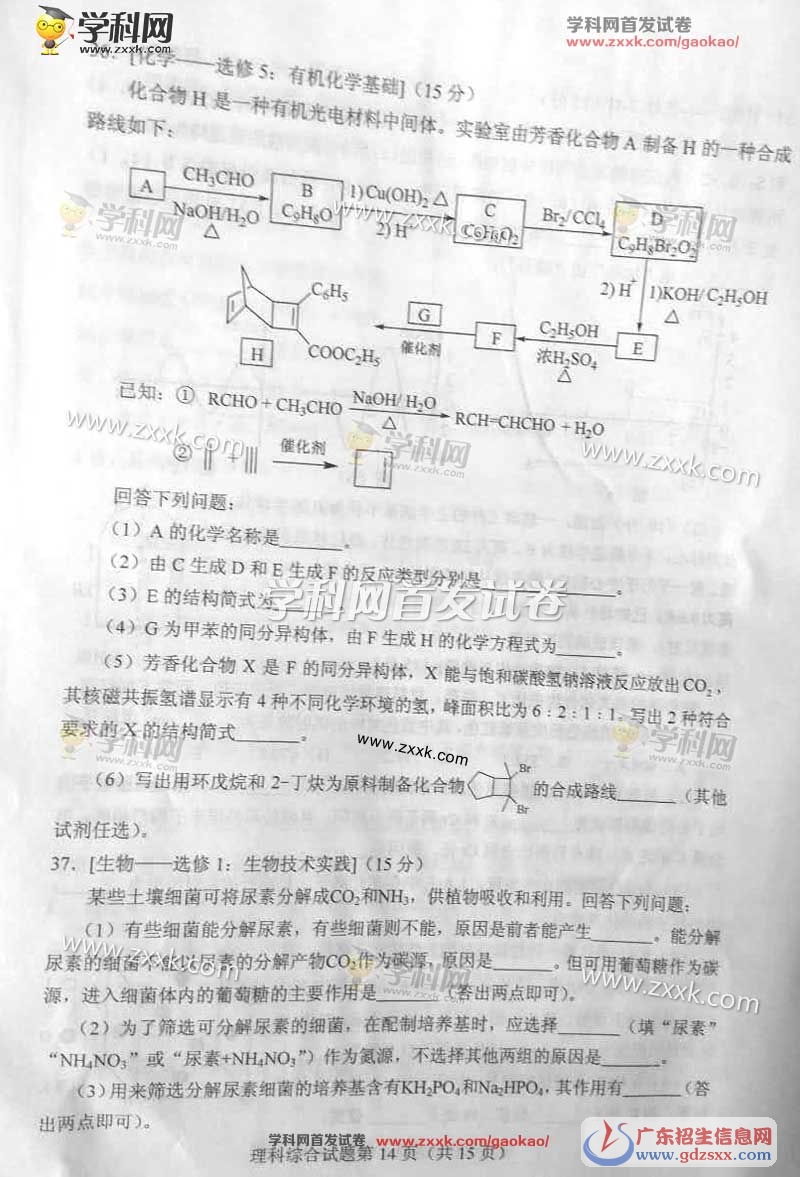 学科网
www.zxxk.com
学科网首发试卷
www.zxxk.com/gaokao/
36. [化学——选修 5：有机化学基础]（15 分）
化合物 H 是一种有机光电材料中间体。实验室由芳香化合物 A 制备 H 的一种合成
路线如下：
A
CH₃CHO
NaOH/H₂O
△
B
C₉H₈O
1)Cu(OH)₂ △
2) H⁺
C
C₉H₈O₂
Br₂/CCl₄
D
C₉H₈Br₂O₂
2) H⁺ 1)KOH/ C₂H₅OH
△
E
C₂H₅OH
浓H₂SO₄
△
F
G
催化剂
C₆H₅
COOC₂H₅
H
已知：① RCHO + CH₃CHO NaOH/ H₂O △ RCH=CHCHO + H₂O
② || + ||| 催化剂
回答下列问题：
（1）A 的化学名称是______。
（2）由 C 生成 D 和 E 生成 F 的反应类型分别是______、______。
（3）E 的结构简式为______。
学科网首发试卷
（4）G 为甲苯的同分异构体，由 F 生成 H 的化学方程式为______。
（5）芳香化合物 X 是 F 的同分异构体，X 能与饱和碳酸氢钠溶液反应放出 CO₂，
其核磁共振氢谱显示有 4 种不同化学环境的氢，峰面积比为 6：2：1：1。写出 2 种符合
要求的 X 的结构简式______。
www.zxxk.com
（6）写出用环戊烷和 2-丁炔为原料制备化合物 Br Br 的合成路线______（其他
试剂任选）。
37. [生物——选修 1：生物技术实践]（15 分）
某些土壤细菌可将尿素分解成CO₂和NH₃，供植物吸收和利用。回答下列问题：
（1）有些细菌能分解尿素，有些细菌则不能，原因是前者能产生______。能分解
尿素的细菌不能以尿素的分解产物CO₂作为碳源，原因是______。但可用葡萄糖作为碳
源，进入细菌体内的葡萄糖的主要作用是______（答出两点即可）。
（2）为了筛选可分解尿素的细菌，在配制培养基时，应选择______（填“尿素”
“NH₄NO₃”或“尿素+NH₄NO₃”）作为氮源，不选择其他两组的原因是______。
（3）用来筛选分解尿素细菌的培养基含有KH₂PO₄和Na₂HPO₄，其作用有______（答
出两点即可）。
学科网首发试卷 www.zxxk.com/gaokao/
理科综合试题第 14 页（共 15 页）
广东招生信息网
www.gdzsxx.com